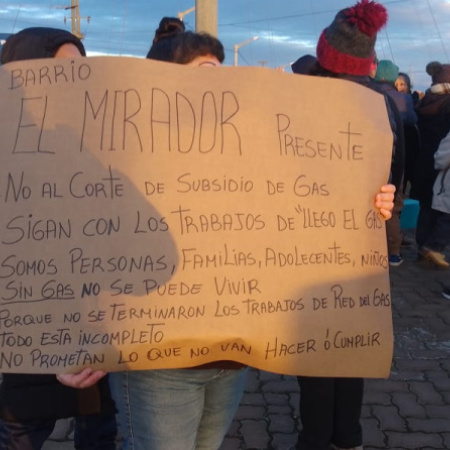 BARRIO
EL MIRADOR PRESENTE
NO AL CORTE DE SUBSIDIO DE GAS
SIGAN CON LOS TRABAJOS DE "LLEGO EL GAS
SOMOS PERSONAS, FAMILIAS, ADOLECENTES, NIÑOS
SIN GAS NO SE PUEDE VIVIR
PORQUE NO SE TERMINARON LOS TRABAJOS DE RED DEL GAS
TODO ESTA INCOMPLETO
NO PROMETAN LO QUE NO VAN HACER Ó CUMPLIR